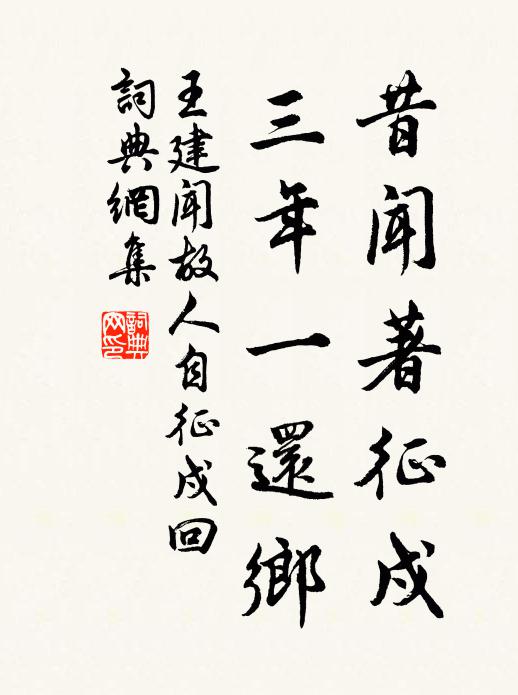 昔聞著征戍
三年一還鄉
王建聞故人自征戍回
詞典網集
詞典
网印